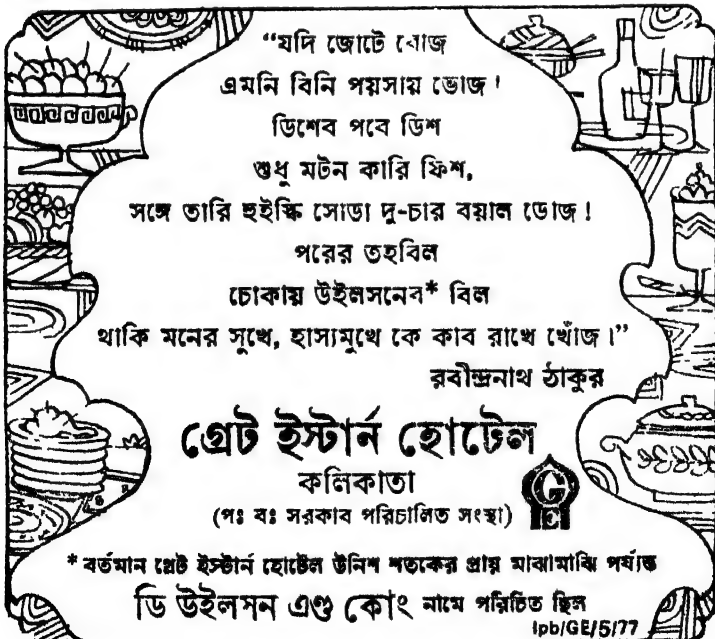 “যদি জোটে বোজ
এমনি বিনি পয়সায় ভোজ!
ডিশেব পবে ডিশ
শুধু মটন কারি ফিশ,
সঙ্গে তারি হুইস্কি সোডা দু-চার বয়াল ডোজ!
পরের তহবিল
চোকায় উইলসনেব* বিল
থাকি মনের সুখে, হাস্যমুখে কে কাব রাখে খোঁজ।”
রবীন্দ্রনাথ ঠাকুর
গ্রেট ইস্টার্ন হোটেল
কলিকাতা
(পঃ বঃ সরকাব পরিচালিত সংস্থা)
GE
* বর্তমান গ্রেট ইস্টার্ন হোটেল উনিশ শতকের প্রায় মাঝামাঝি পর্যন্ত
ডি উইলসন এণ্ড কোং নামে পরিচিত ছিল
ipb/GE/5/77